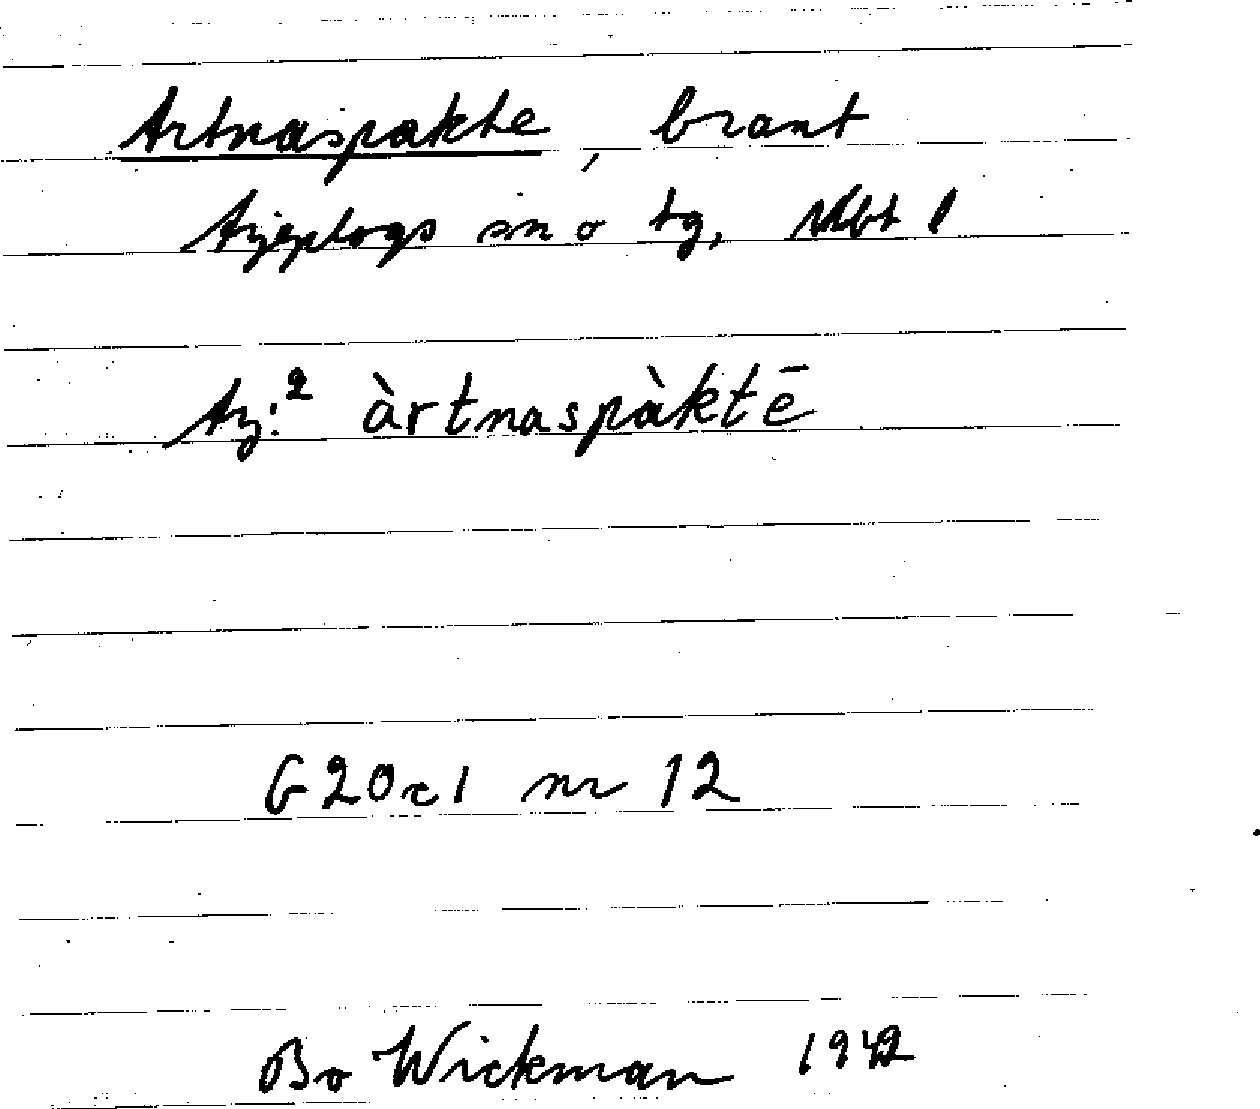 Artnaspakte, brant
Arjeplogs sn o tg, Nbt l
Arj:² àrtnaspàktē
G 20 c 1 nr 12
Bo Wickman 1942